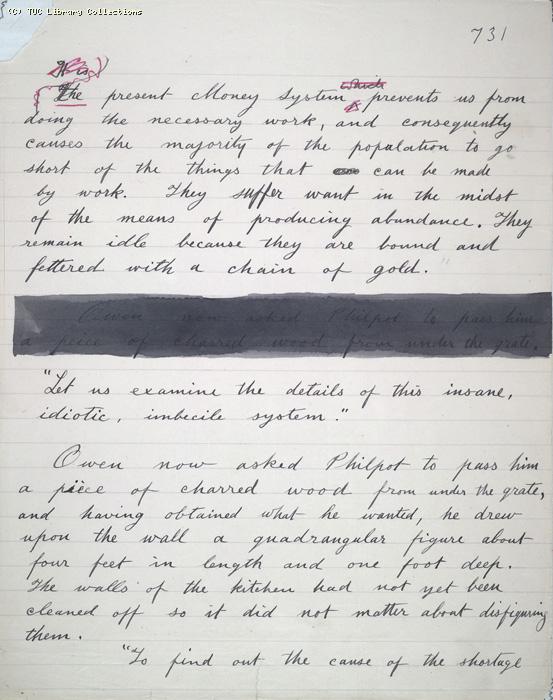 (C) TUC Library Collections
731
It is
The present Money System which prevents us from
doing the necessary work, and consequently
causes the majority of the population to go
short of the things that can be made
by work. They suffer want in the midst
of the means of producing abundance. They
remain idle because they are bound and
fettered with a chain of gold.
Owen now asked Philpot to pass him
a peice of charred wood from under the grate.
"Let us examine the details of this insane,
idiotic, imbecile system."
Owen now asked Philpot to pass him
a piece of charred wood from under the grate,
and having obtained what he wanted, he drew
upon the wall a quadrangular figure about
four feet in length and one foot deep.
The walls of the kitchen had not yet been
cleaned off so it did not matter about disfiguring
them.
"To find out the cause of the shortage